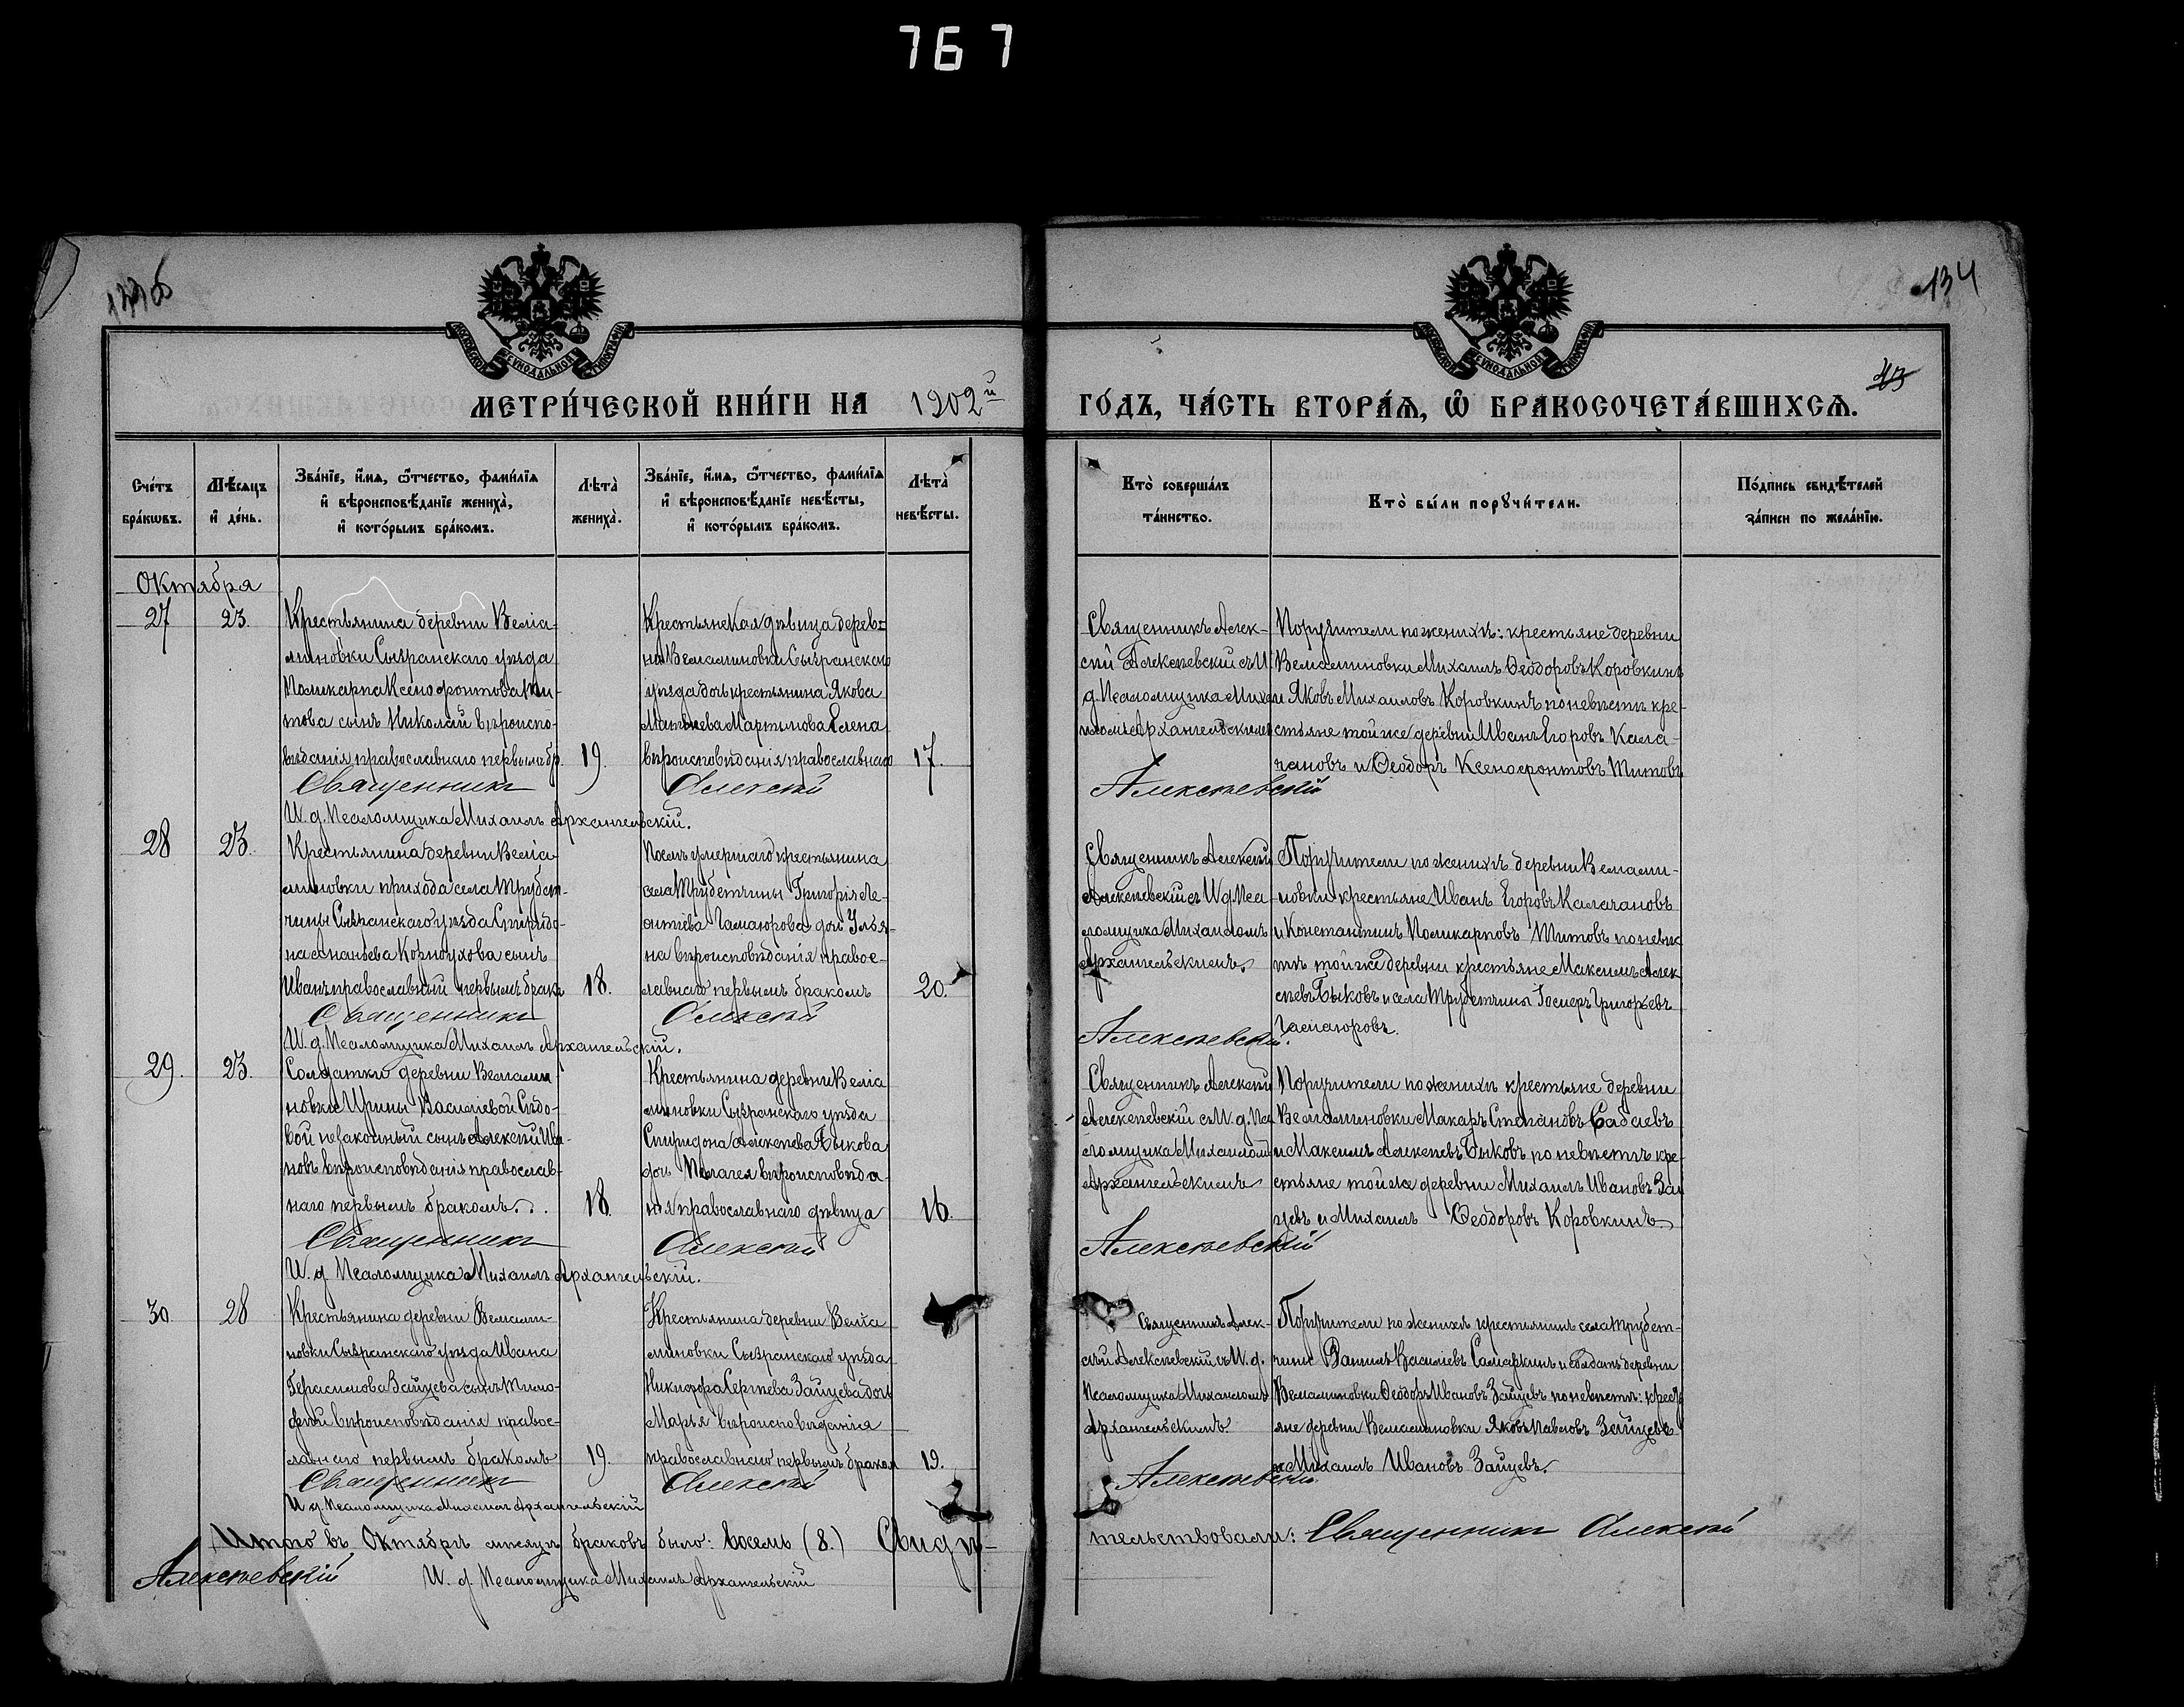 767
134
43
МЕТРИ́ЧЕСКОЙ КНИ́ГИ НА 1902й ГО́ДЪ, ЧА́СТЬ ВТОРА́Я, Ѡ БРАКОСОЧЕТА́ВШИХСЯ.
Сче́тъ бра́кѡвъ.
Мѣ́сяцъ и́ де́нь.
Зва́нїе, и́мя, ѻ́тчество, фами́лїя
и́ вѣроисповѣ́данїе жениха̀,
и́ кото́рымъ бра́комъ.
Лѣта̀ жениха̀.
Зва́нїе, и́мя, ѻ́тчество, фами́лїя
и́ вѣроисповѣ́данїе невѣ́сты,
и́ кото́рымъ бра́комъ.
Лѣта̀ невѣ́сты.
Кто̀ соверша́лъ
та́инство.
Кто̀ бы́ли порꙋчи́тели.
По́дпись свидѣ́телей
за́писи по жела́нїю.
Октября
27
23.
Крестьянина деревни Веліа-
миновки Сызранскаго уѣзда
Поликарпа Ксенофонтова Ти-
това сынъ Николай вѣроиспо-
вѣданія православнаго первымъ бр.
19.
Крестьянская дѣвица дерев-
ни Веліаминовки Сызранскаго
уѣзда дочь крестьянина Якова
Матвѣева Мартынова Елена
вѣроисповѣданія православнаго
17.
Священникъ Алек-
сій Алексѣевскій съ И
д. Псаломщика Миха-
иломъ Архангельскимъ
Поручители по женихѣ: крестьяне деревни
Веліаминовки Михаилъ Ѳеодоровъ Коровкинъ
и Яковъ Михаиловъ Коровкинъ по невѣстѣ кре-
стьяне той же деревни Иванъ Егоровъ Кала-
чановъ и Ѳеодоръ Ксенофонтовъ Титовъ
Священникъ Алексій Алексѣевскій
И. д. Псаломщика Михаилъ Архангельскій.
28
23.
Крестьянина деревни Веліа-
миновки прихода села Трубет-
чины Сызранскаго уѣзда Спиридо-
на Ананьева Корноухова сынъ
Иванъ православный первымъ брак.
18.
Послѣ умершаго крестьянина
села Трубетчины Григорія Ле-
онтіева дочь Улья-
на вѣроисповѣданія правос-
лавнаго первымъ бракомъ
20.
Священникъ Алексій
Алексѣевскій съ И д Пса-
ломщика Михаиломъ
Архангельскимъ.
Поручители по женихѣ деревни Веліами-
новки крестьяне Иванъ Егоровъ Калачановъ
и Константинъ Поликарповъ Титовъ по невѣс
тѣ той же деревни крестьяне Максимъ Алек
сѣевъ Быковъ и села Трубетчины Григорьевъ
Священникъ Алексій Алексѣевскій.
И. д. Псаломщика Михаилъ Архангельскій.
29.
23.
Солдатки деревни Веліами
новки Ирины Васильевой Сѣдо-
вой незаконный сынъ Алексѣй Ива-
новъ вѣроисповѣданія православ-
наго первымъ бракомъ.
18.
Крестьянина деревни Веліа
миновки Сызранскаго уѣзда
Спиридона Алексѣева Быкова
дочь Пелагея вѣроисповѣда-
нія православнаго дѣвица
16.
Священникъ Алексій
Алексѣевскій съ И. д. Пса
ломщика Михаиломъ
Архангельскимъ
Поручители по женихѣ крестьяне деревни
Веліаминовки Макаръ Степановъ Бабаевъ
и Максимъ Алексѣевъ Быковъ по невѣстѣ кре-
стьяне той же деревни Михаилъ Ивановъ Зай
цевъ и Михаилъ Ѳеодоровъ Коровкинъ
Священникъ Алексій Алексѣевскій
И. д Псаломщика Михаилъ Архангельскій.
30
28
Крестьянина деревни Веліами-
новки Сызранскаго уѣзда Ивана
Герасимова Зайцева сынъ Тимо-
фей вѣроисповѣданія правос-
лавнаго первымъ бракомъ
19.
Крестьянина деревни Веліа
миновки Сызранскаго уѣзда
Никифора Сергѣева Зайцева дочь
Марья вѣроисповѣданія
православнаго первымъ браком
19.
Священникъ Алек-
сѣй Алексѣевскій съ И. д.
Псаломщика Михаиломъ
Архангельскимъ
Поручители по женихѣ крестьянинъ села Трубет-
чины Василіевъ Самаркинъ и солдатъ деревни
Веліаминовки Ѳеодоръ Ивановъ Зайцевъ по невѣстѣ: крестья
яне деревни Веліаминовки Яковъ Павловъ Зайцевъ
и Михаилъ Ивановъ Зайцевъ.
Священникъ Алексій Алексѣевскій
И д Псаломщика Михаилъ Архангельскій
Итого въ Октябрѣ мѣсяцѣ браковъ было: восемь (8.) Свидѣ-
тельствовали: Священникъ Алексій
Алексѣевскій И. д. Псаломщика Михаилъ Архангельскій